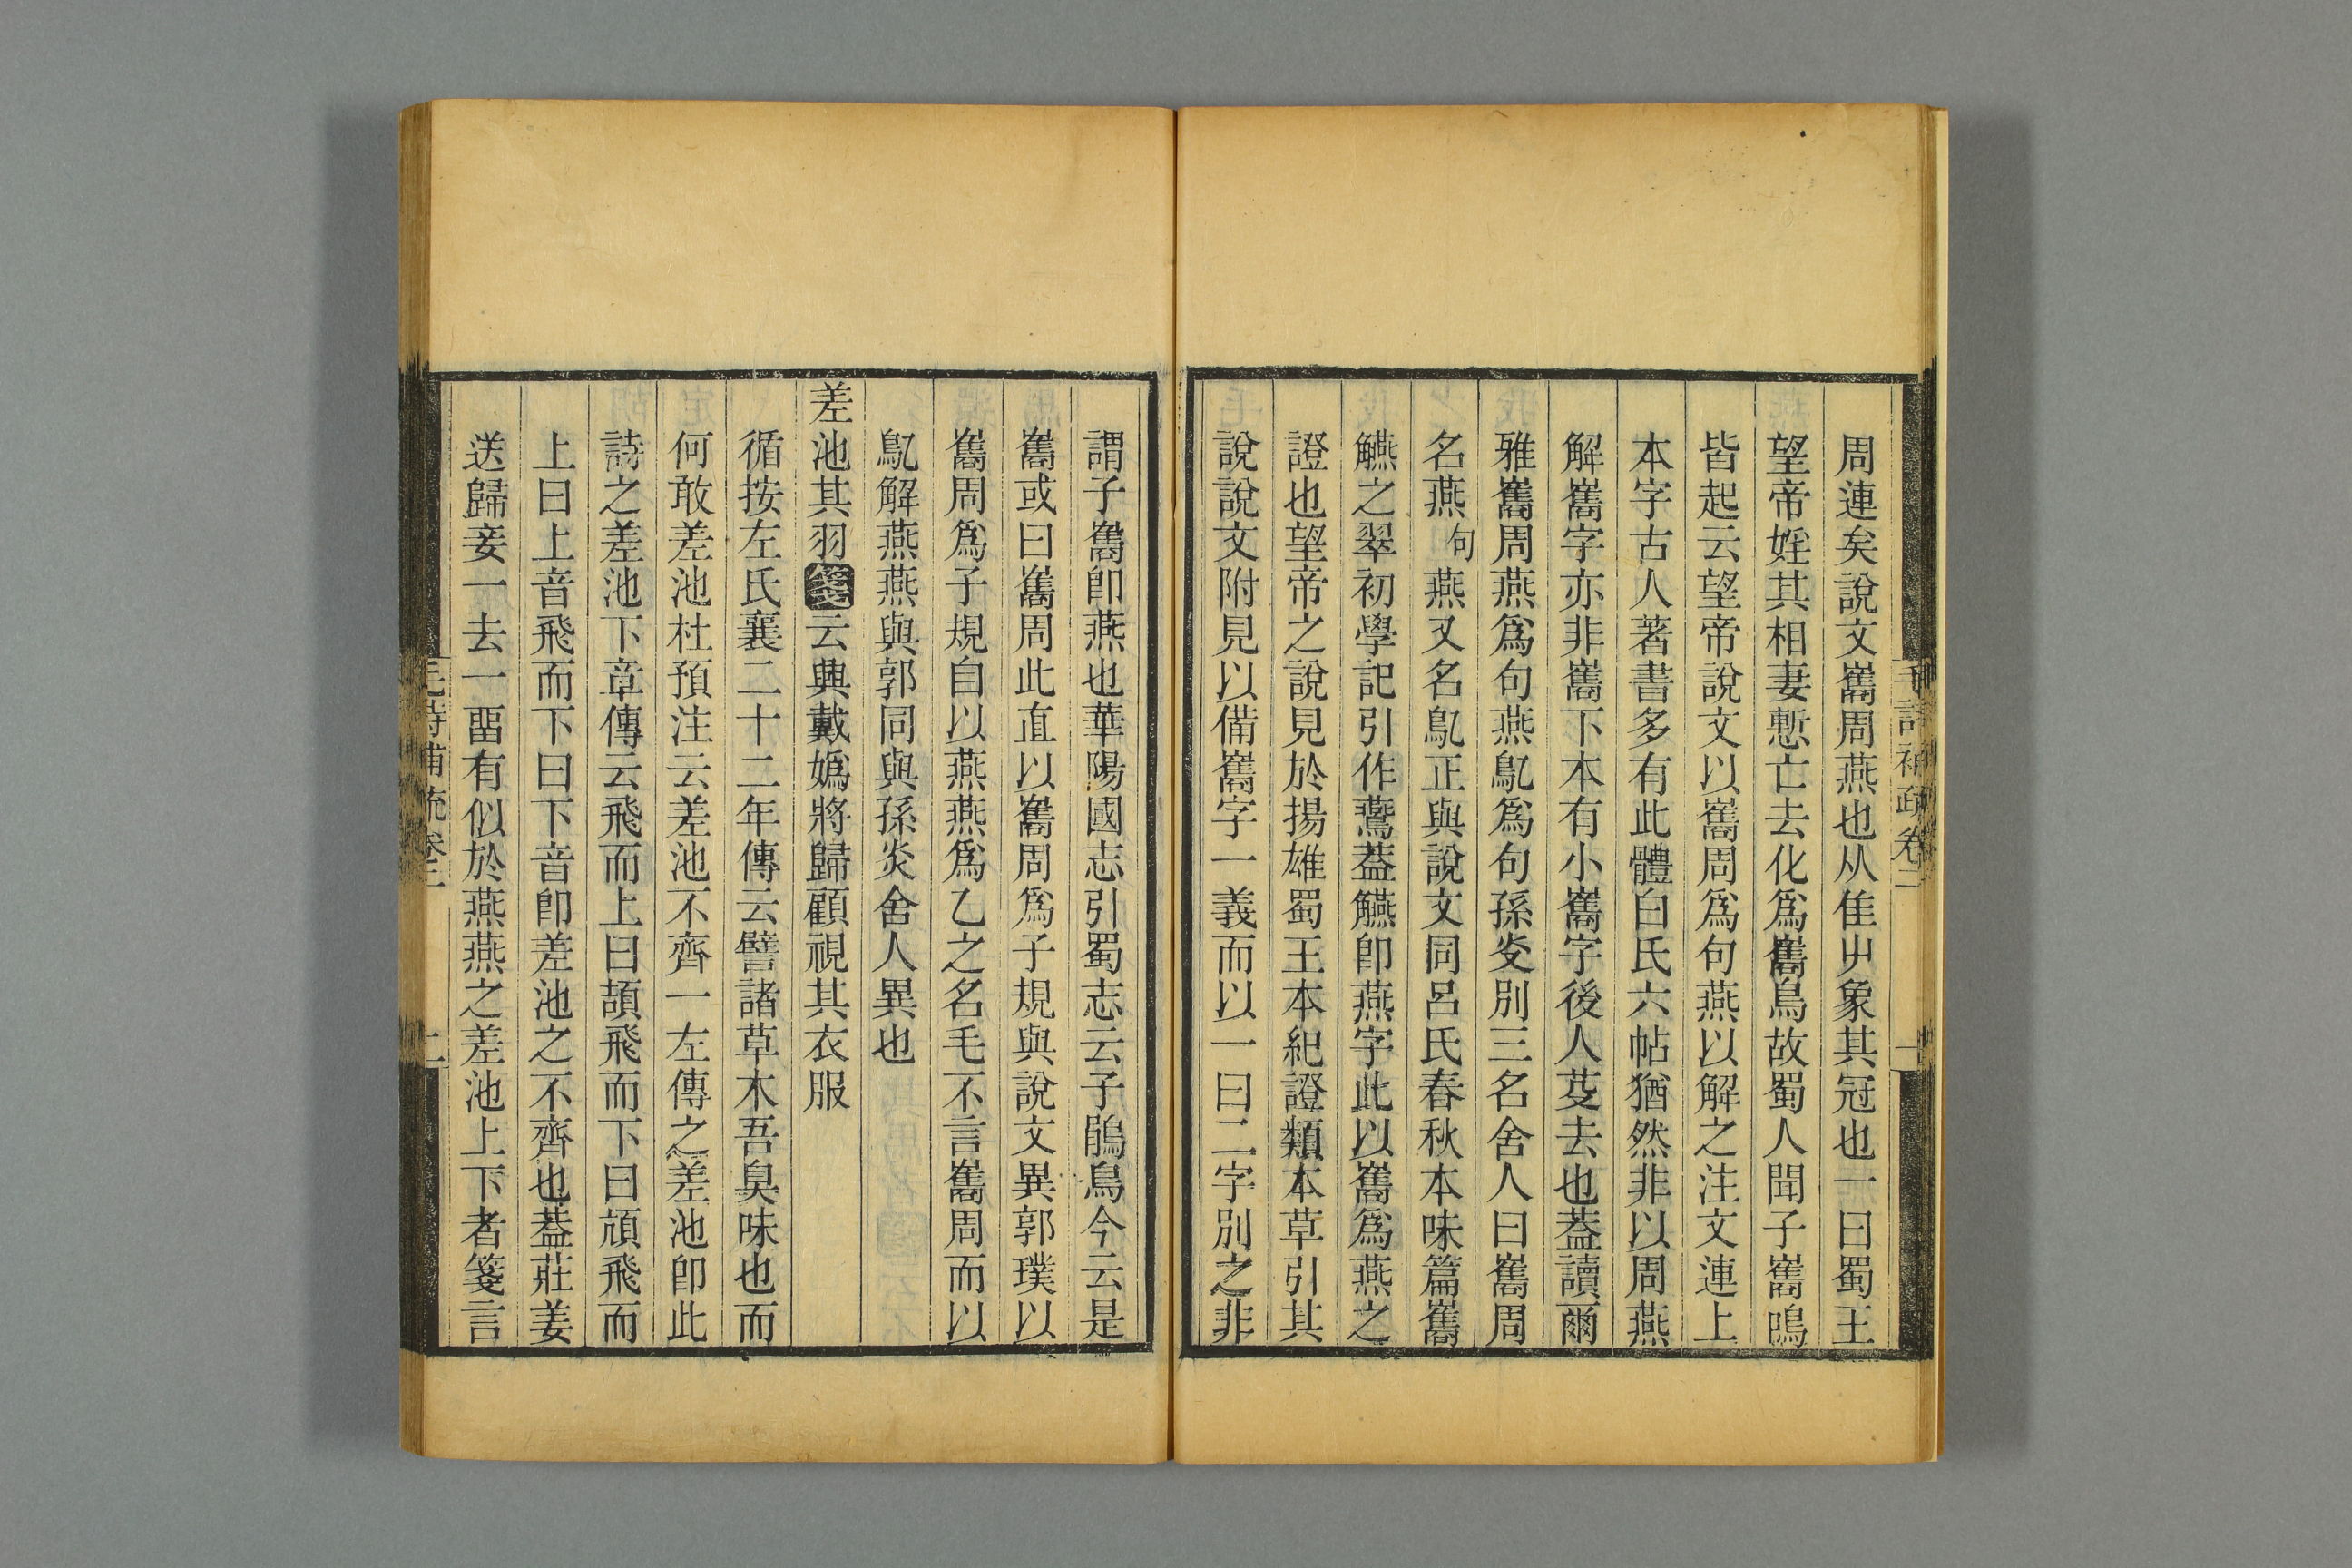 毛詩補疏卷二
一
周連矣說文巂周燕也从隹屮象其冠也一曰蜀王
望帝婬其相妻慙亡去化爲巂鳥故蜀人聞子巂鳴
皆起云望帝說文以巂周爲句燕以解之注文連上
本字古人著書多有此體白氏六帖猶然非以周燕
解巂字亦非巂下本有小巂字後人芟去也葢讀爾
雅巂周燕爲句燕鳦爲句孫炎別三名舍人曰巂周
名燕句燕又名鳦正與說文同呂氏春秋本味篇巂
觾之翠初學記引作鷰葢觾卽燕字此以巂爲燕之
證也望帝之說見於揚雄蜀王本紀證類本草引其
說說文附見以備巂字一義而以一曰二字別之非
謂子巂卽燕也華陽國志引蜀志云子鵑鳥今云是
巂或曰巂周此直以巂周爲子規與說文異郭璞以
巂周爲子規自以燕燕爲乙之名毛不言巂周而以
鳦解燕燕與郭同與孫炎舍人異也
差池其羽箋云興戴嬀將歸顧視其衣服
循按左氏襄二十二年傳云譬諸草木吾臭味也而
何敢差池杜預注云差池不齊一左傳之差池卽此
詩之差池下章傳云飛而上曰頡飛而下曰頏飛而
上曰上音飛而下曰下音卽差池之不齊也葢莊姜
送歸妾一去一畱有似於燕燕之差池上下者箋言
毛詩補疏卷二